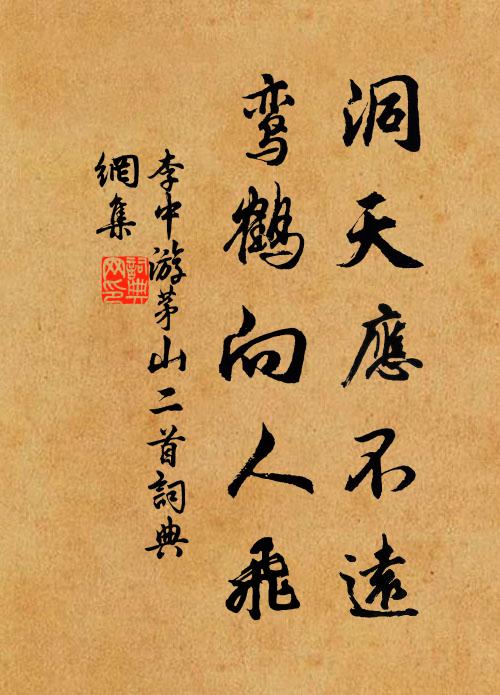 洞天應不遠
鸾鶴向人飛
李中游茅山二首詞典
網集
詞典
网印